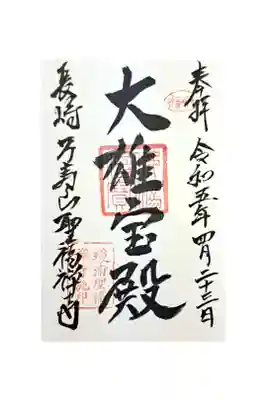 奉拝 令和五年四月二十三日
大雄宝殿
長崎 万寿山聖福禅寺